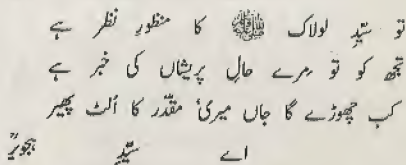 تو سیّدِ لولاک ﷺ کا منظورِ نظر ہے
تجھ کو تو مِرے حالِ پریشاں کی خبر ہے
کب چھوڑے گا جاں میری مقدّر کا اُلٹ پھیر
اے سیّدِ ہجویرؒ